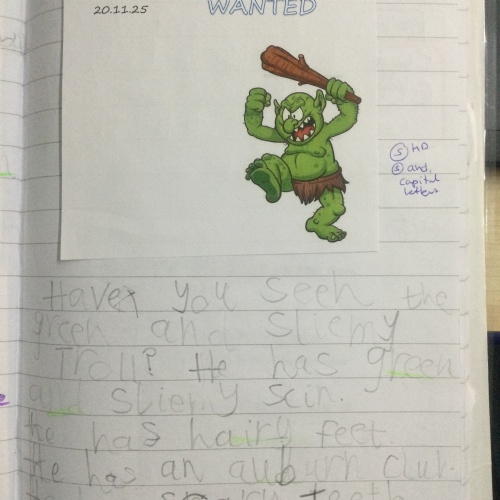 20.11.25
WANTED
Ⓢ HD
Ⓢ and,
capital
letters
Have you seen the
green and sliemy
Troll? He has green
and sliemy scin.
He has hairy feet.
He has an auburn club.